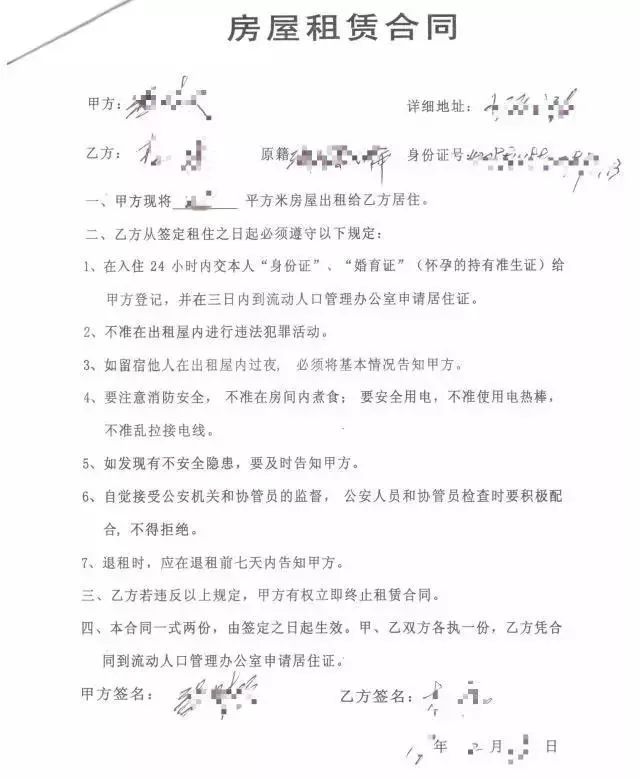 房屋租赁合同
甲方: 详细地址:
乙方: 原籍 身份证号:
一、甲方现将 平方米房屋出租给乙方居住。
二、乙方从签定租住之日起必须遵守以下规定:
1、在入住 24 小时内交本人“身份证”、“婚育证”（怀孕的持有准生证）给
甲方登记，并在三日内到流动人口管理办公室申请居住证。
2、不准在出租屋内进行违法犯罪活动。
3、如留宿他人在出租屋内过夜, 必须将基本情况告知甲方。
4、要注意消防安全， 不准在房间内煮食； 要安全用电，不准使用电热棒，
不准乱拉接电线。
5、如发现有不安全隐患，要及时告知甲方。
6、自觉接受公安机关和协管员的监督， 公安人员和协管员检查时要积极配
合, 不得拒绝。
7、退租时，应在退租前七天内告知甲方。
三、乙方若违反以上规定，甲方有权立即终止租赁合同。
四、本合同一式两份，由签定之日起生效。甲、乙双方各执一份，乙方凭合
同到流动人口管理办公室申请居住证。
甲方签名: 乙方签名:
年 月 日